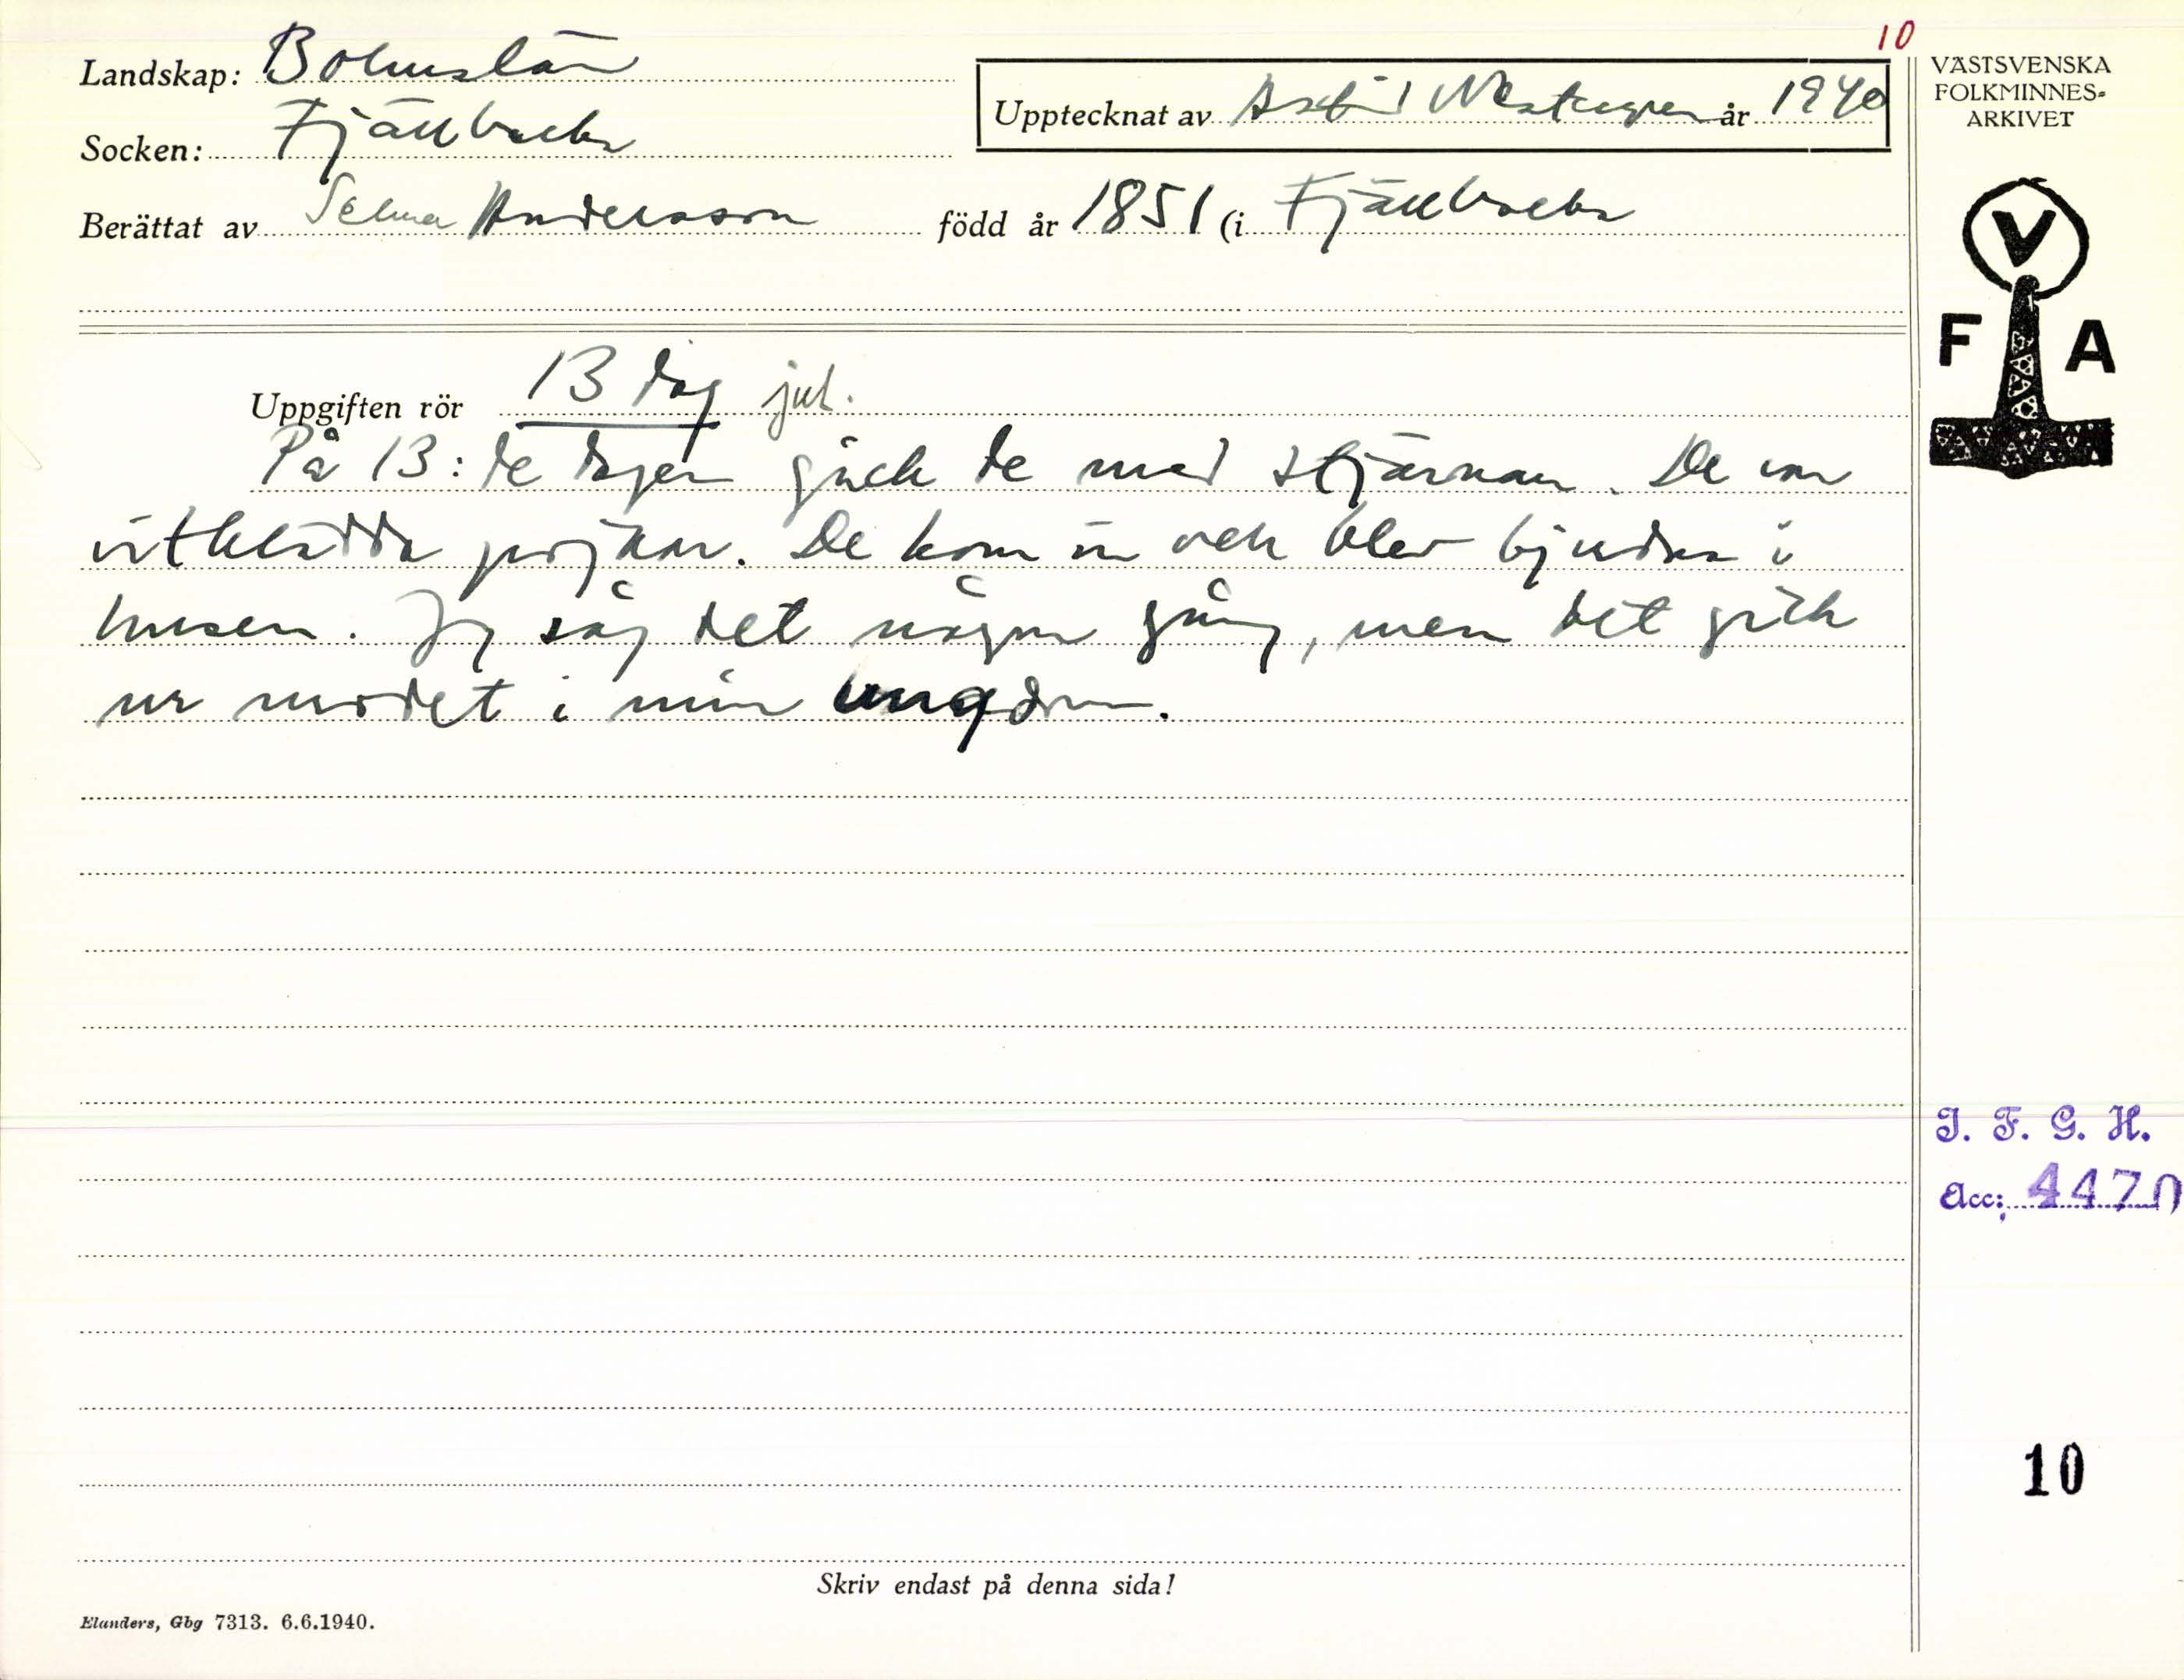 10
Landskap: Bohuslän
Socken: Fjällbacka
Upptecknat av Astrid år 1940
Berättat av Selma Andersson född år 1851 (i Fjällbacka
VÄSTSVENSKA
FOLKMINNES-
ARKIVET
V
F A
Uppgiften rör 13 dag jul.
På 13:de dagen gick de med stjärnan. De var
vitklädda pojkar. De kom in och blev bjudna i
husen. Jag såg det någon gång, men det gick
ur modet i min ungdom.
I. F. G. H.
Acc: 4470
10
Skriv endast på denna sida!
Elanders, Gbg 7313. 6.6.1940.